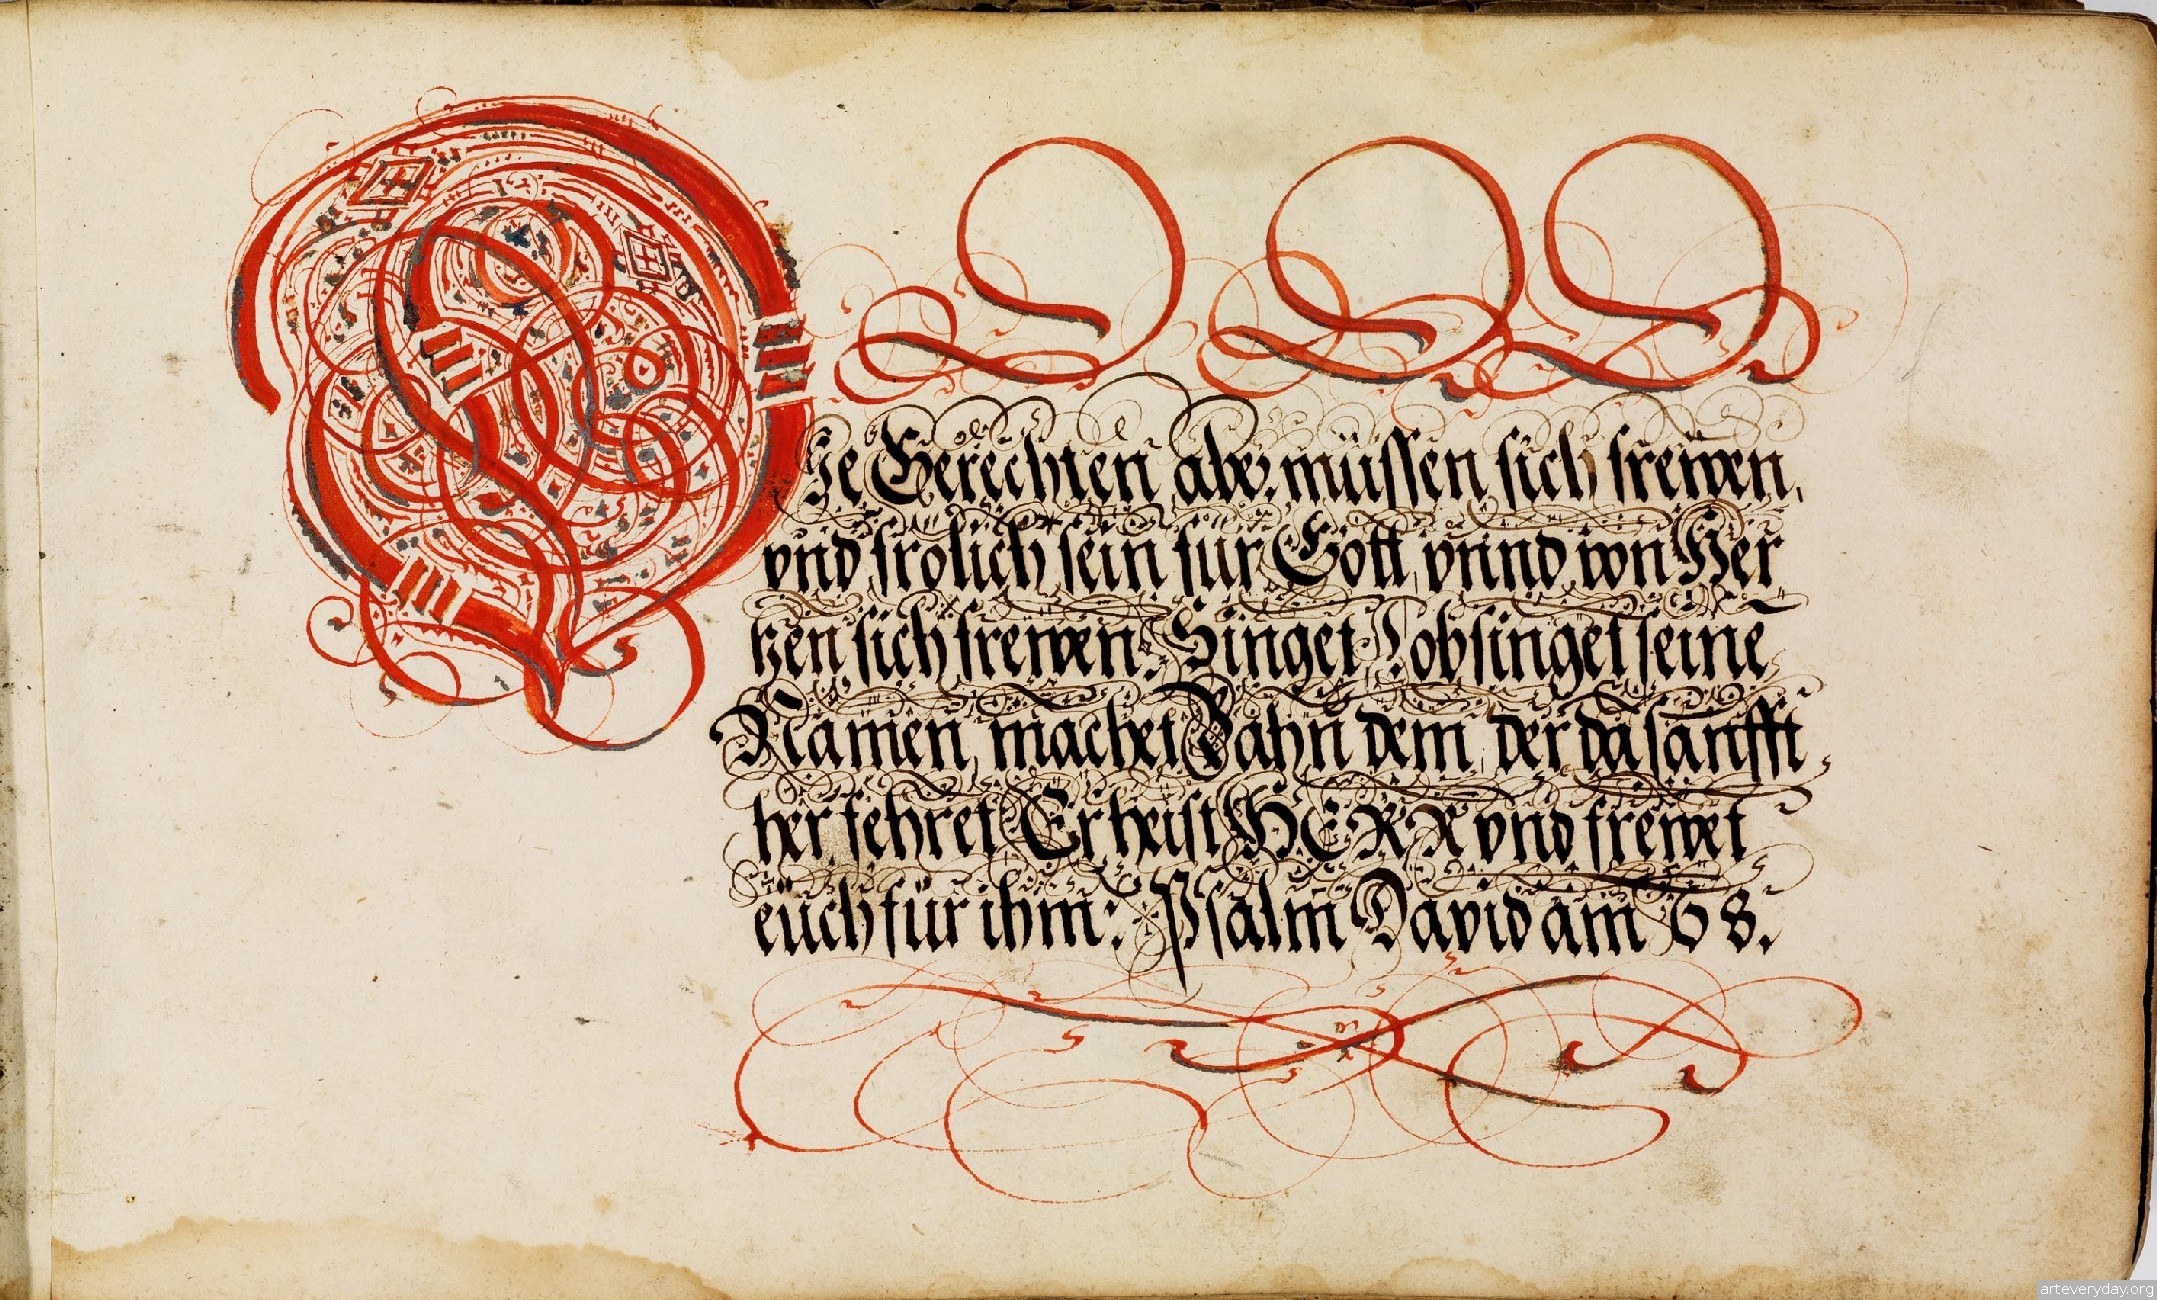 Dje Gerechten aber müssen sich frewen,
vnd frölich sein für Gott, vnnd von Her
tzen sich frewen. Singet Lobsinget seinē
Namen, machet Bahn dem, der da sanfft
her fehret, Er heist HERR vnd frewet
euch für ihm: Psalm David am 68.
arteveryday.org